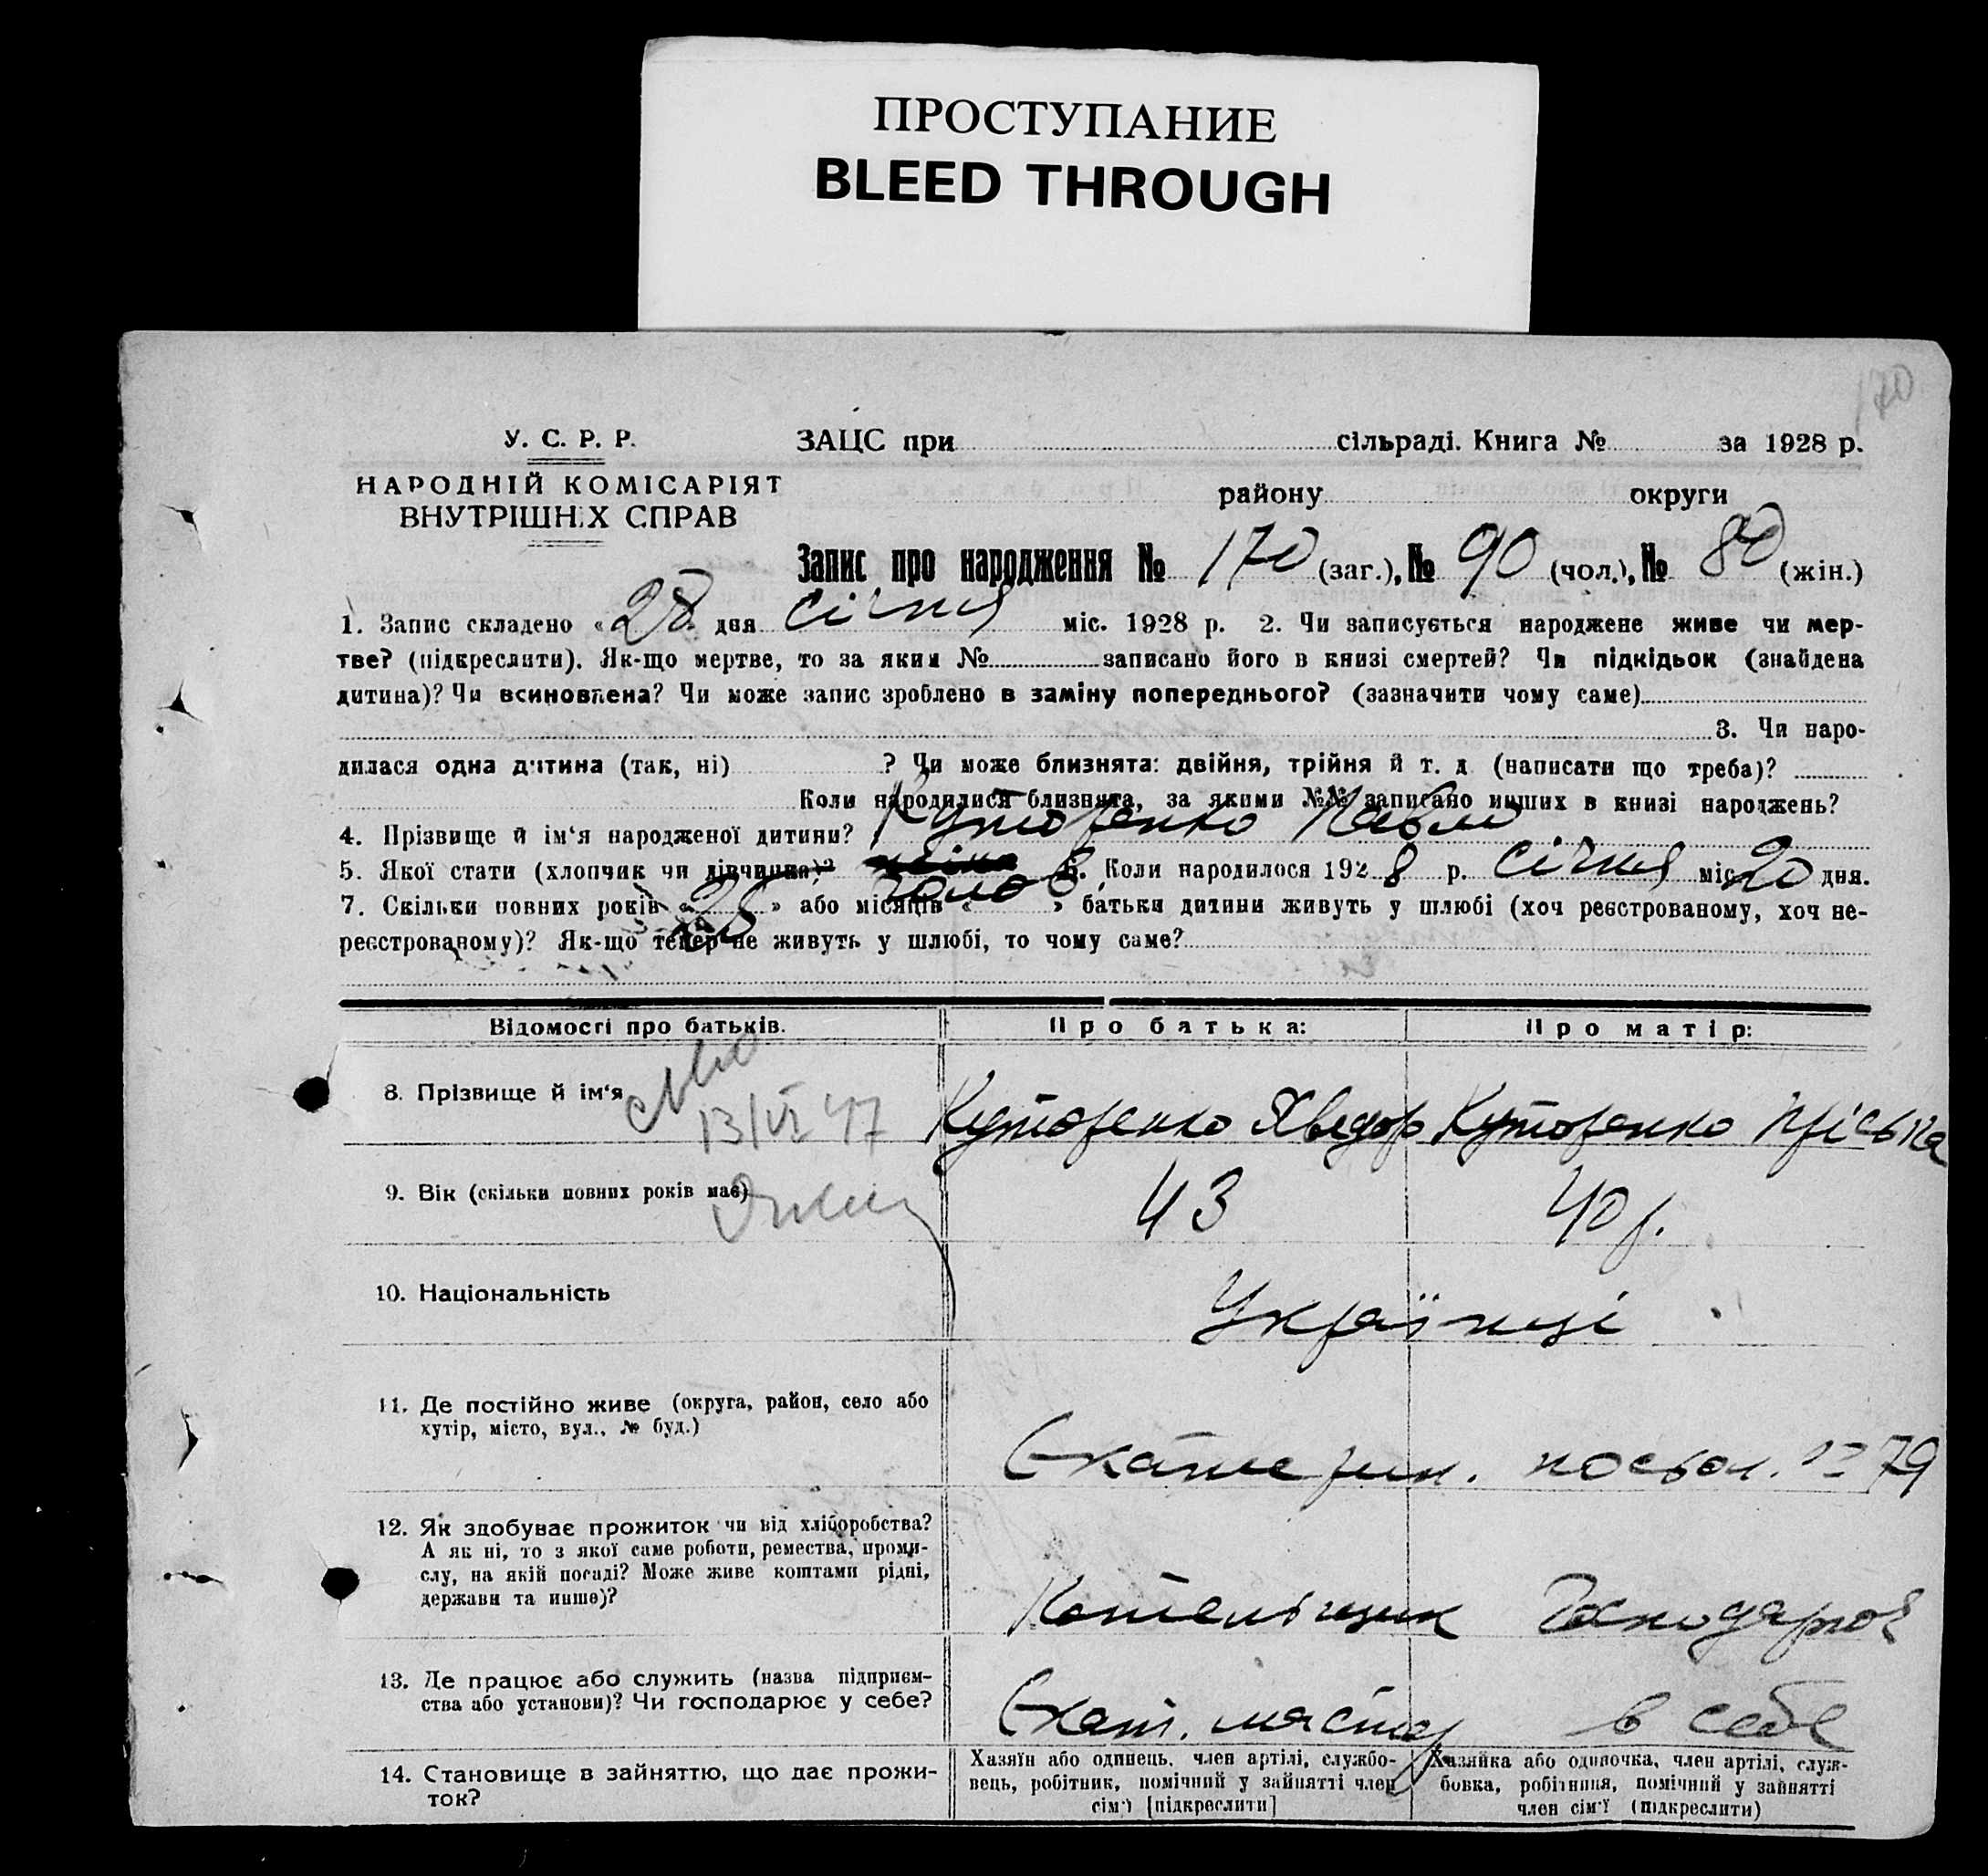 ПРОСТУПАНИЕ
BLEED THROUGH
170
У. С. Р. Р.
НАРОДНІЙ КОМІСАРІЯТ
ВНУТРІШНІХ СПРАВ
ЗАЦС при сільраді. Книга № за 1928 р.
району округи
Запис про народження № 170 (заг.), № 90 (чол.), № 80 (жін.)
1. Запис складено « 28 » дня січня міс. 1928 р. 2. Чи записується народжене живе чи мер-
тве? (підкреслити). Як-що мертве, то за яким № записано його в книзі смертей? Чи підкідьок (знайдена
дитина)? Чи всиновлена? Чи може запис зроблено в заміну попереднього? (зазначити чому саме)
3. Чи наро-
дилася одна дитина (так, ні) ? Чи може близнята: двійня, трійня й т. д. (написати що треба)?
Коли народилися близнята, за якими №№ записано инших в книзі народжень?
4. Прізвище й ім‘я народженої дитини? Куторенко Павло
5. Якої стати (хлопчик чи дівчинка)? чолов. 6. Коли народилося 1928 р. січня міс. 20 дня.
7. Скільки повних років « 25 » або місяців « » батьки дитини живуть у шлюбі (хоч реєстрованому, хоч не-
реєстрованому)? Як-що тепер не живуть у шлюбі, то чому саме?
Відомості про батьків. Про батька: Про матір:
8. Прізвище й ім‘я Куторенко Хведор Куторенко Пріська
13/VI 47
9. Вік (скільки повних років має) 43 40 р.
10. Національність Українці
11. Де постійно живе (округа, район, село або
хутір, місто, вул., № буд.)
Екатерин. посьол. № 79
12. Як здобуває прожиток чи від хліборобства?
А як ні, то з якої саме роботи, ремества, проми-
слу, на якій посаді? Може живе коштами рідні,
держави та инше)?
Котельщик Господарює
13. Де працює або служить (назва підприєм-
ства або установи)? Чи господарює у себе?
Екат. мастер в себе
14. Становище в зайняттю, що дає прожи-
ток?
Хазяїн або одинець, член артілі, службо-
вець, робітник, помічний у зайнятті член
сім‘ї [підкреслити]
Хазяйка або одиночка, член артілі, служ-
бовка, робітниця, помічний у зайнятті
член сім‘ї (підкреслити)